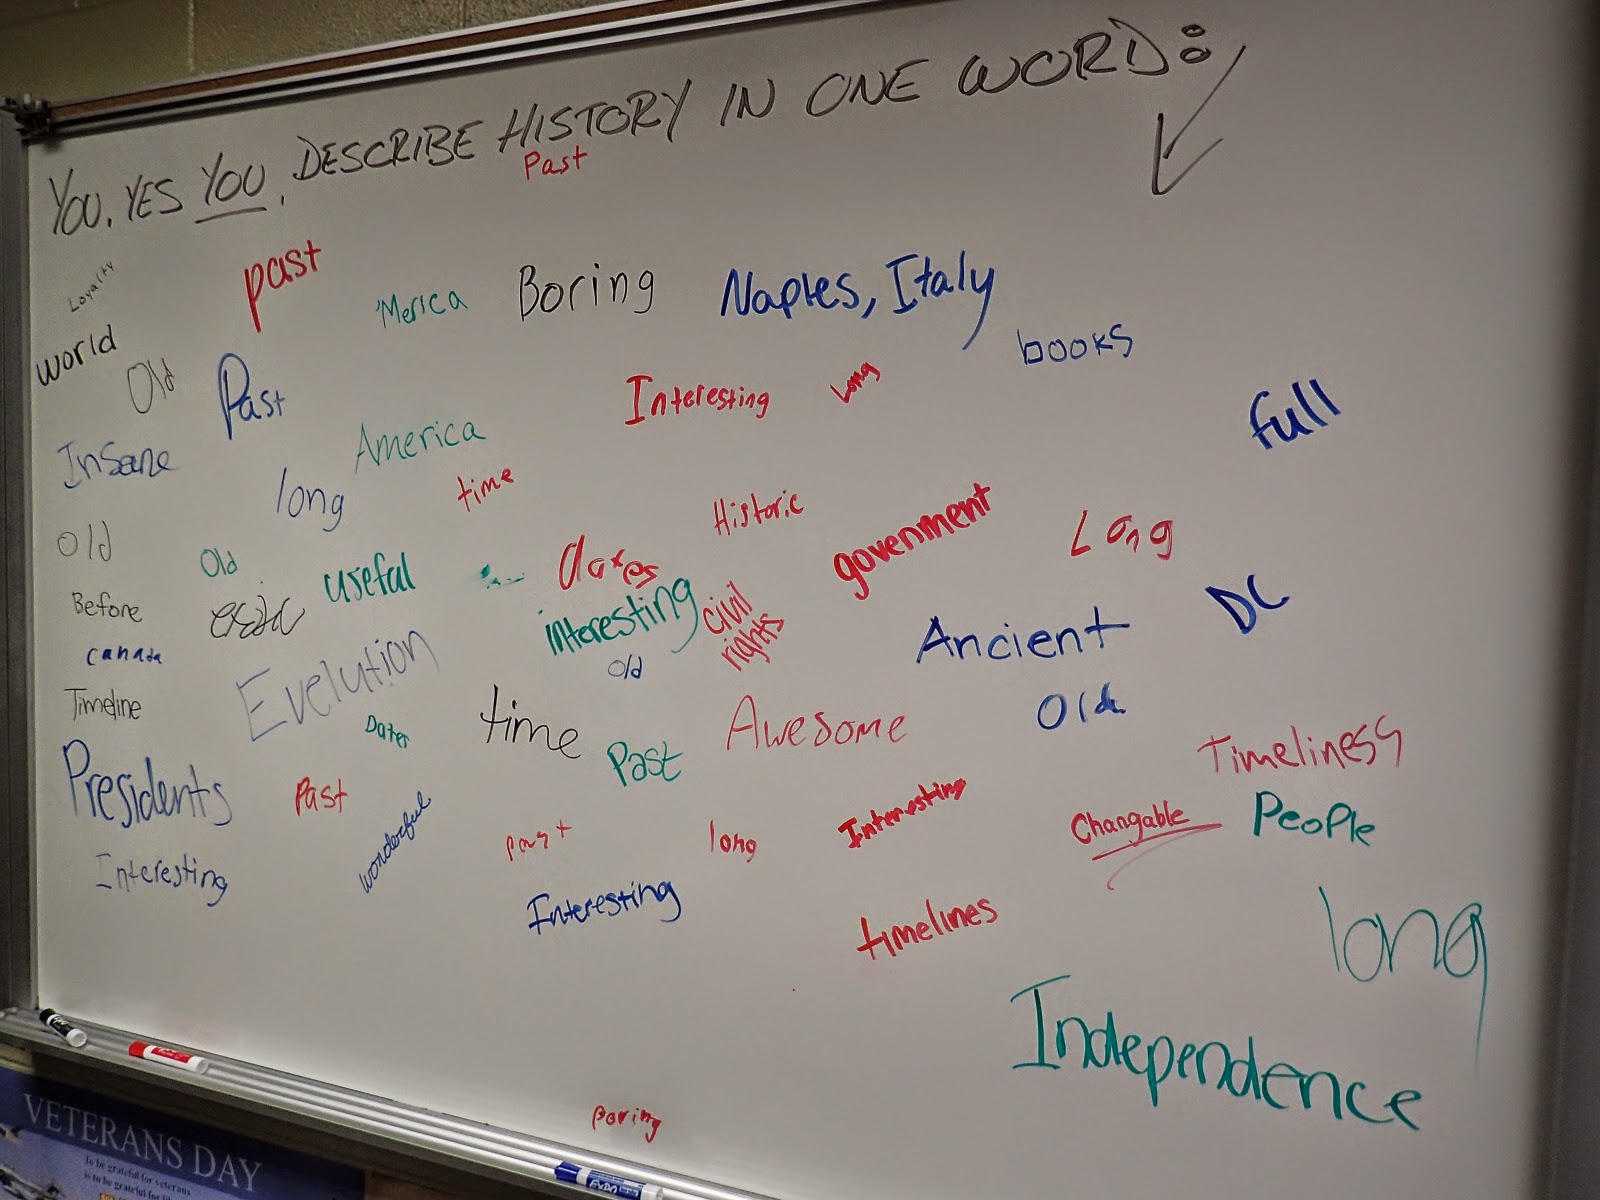 YOU, YES YOU, DESCRIBE HISTORY IN ONE WORD:
Past
Loyalty
past
'Merica
Boring
Naples, Italy
books
world
Old
Past
Interesting
Long
full
Insane
America
long
time
Historic
government
Long
Old
Old
useful
Dates
interesting
civil
rights
DC
Before
Canada
Evelution
Old
Ancient
Old
Timeline
Dates
time
Past
Awesome
Timeliness
Presidents
Past
wonderful
past
long
Interesting
Changable
People
Interesting
Interesting
timelines
long
Independence
Boring
EXPO
VETERANS DAY
To be grateful for veterans
is to be grateful for